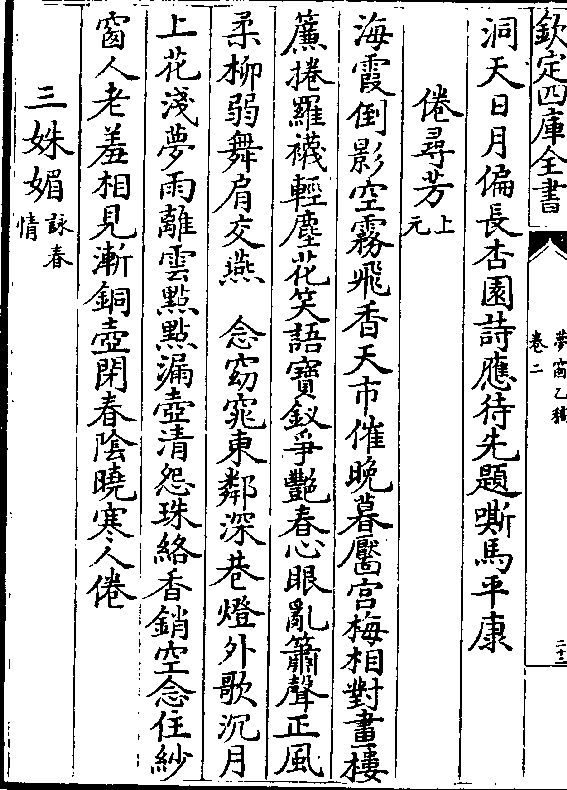 欽定四庫全書
夢窗乙稿
卷二
二十三
洞天日月偏長杏園詩應待先題嘶馬平康
倦尋芳上元
海霞倒影空霧飛香天市催晚暮靨宫梅相對畫樓
簾捲羅襪輕塵花笑語寶釵爭艷春心眼亂簫聲正風
柔柳弱舞肩交燕　念窈窕東鄰深巷燈外歌沉月
上花淺夢雨離雲點點漏壺清怨珠絡香銷空念住紗
窗人老羞相見漸銅壺閉春陰曉寒人倦
三姝媚詠春情